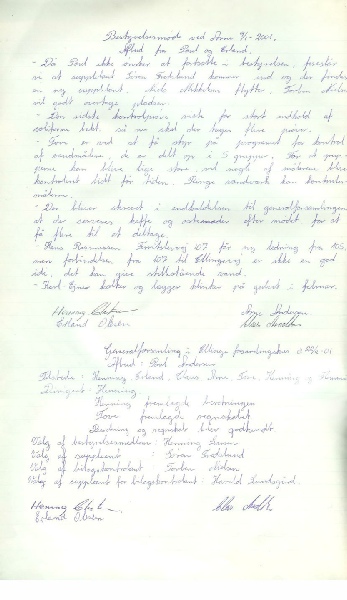 Bestyrelsesmøde ved Arne 9/1-2001.
Afbud fra Poul og Erland.
- Da Poul ikke ønsker at fortsætte i bestyrelsen, foreslår
vi at suppleant Søren Fredslund kommer ind og der findes
en ny suppleant. Niels Mikkelsen flytter. Torben Nielsen
vil godt overtage pladsen.
- Den sidste kontrolprøve viste for stort indhold af
kimtal, så nu skal der tages flere prøver.
- Tove er ved at få styr på programmet for kontrol
af vandmålere, de er delt op i 5 grupper. For at
kan blive lige store vil nogle af målerne blive
kontrolleret lidt før tiden. Mange vandværk kan kontrollere
målerne.
- Der bliver skrevet i indkaldelsen til generalforsamlingen
at der serveres kaffe og ostemadder efter mødet for at
få flere til at deltage.
- Hans Rasmussen 107 får ny ledning fra 105,
men forbindelsen fra 107 til Ellingevej er ikke en god
ide, det kan give stillestående vand.
- Karl Egner kalker og lægger klinker på gulvet i februar.
Henning
Erland Olsen
Generalforsamling i forsamlingshus d. -01
Afbud: Poul Andersen
Tilstede: Henning, Erland, Claus, Arne, Tove, Henning og
Dirigent: Henning
Henning fremlagde beretningen
Tove fremlagde regnskabet
Beretning og regnskab blev godkendt
Valg af bestyrelsesmedlem: Henning
Valg af suppleant : Søren Fredslund
Valg af bilagskontrolant : Torben Nielsen
Valg af suppleant for bilagskontrolant: Harald
Henning
Erland Olsen